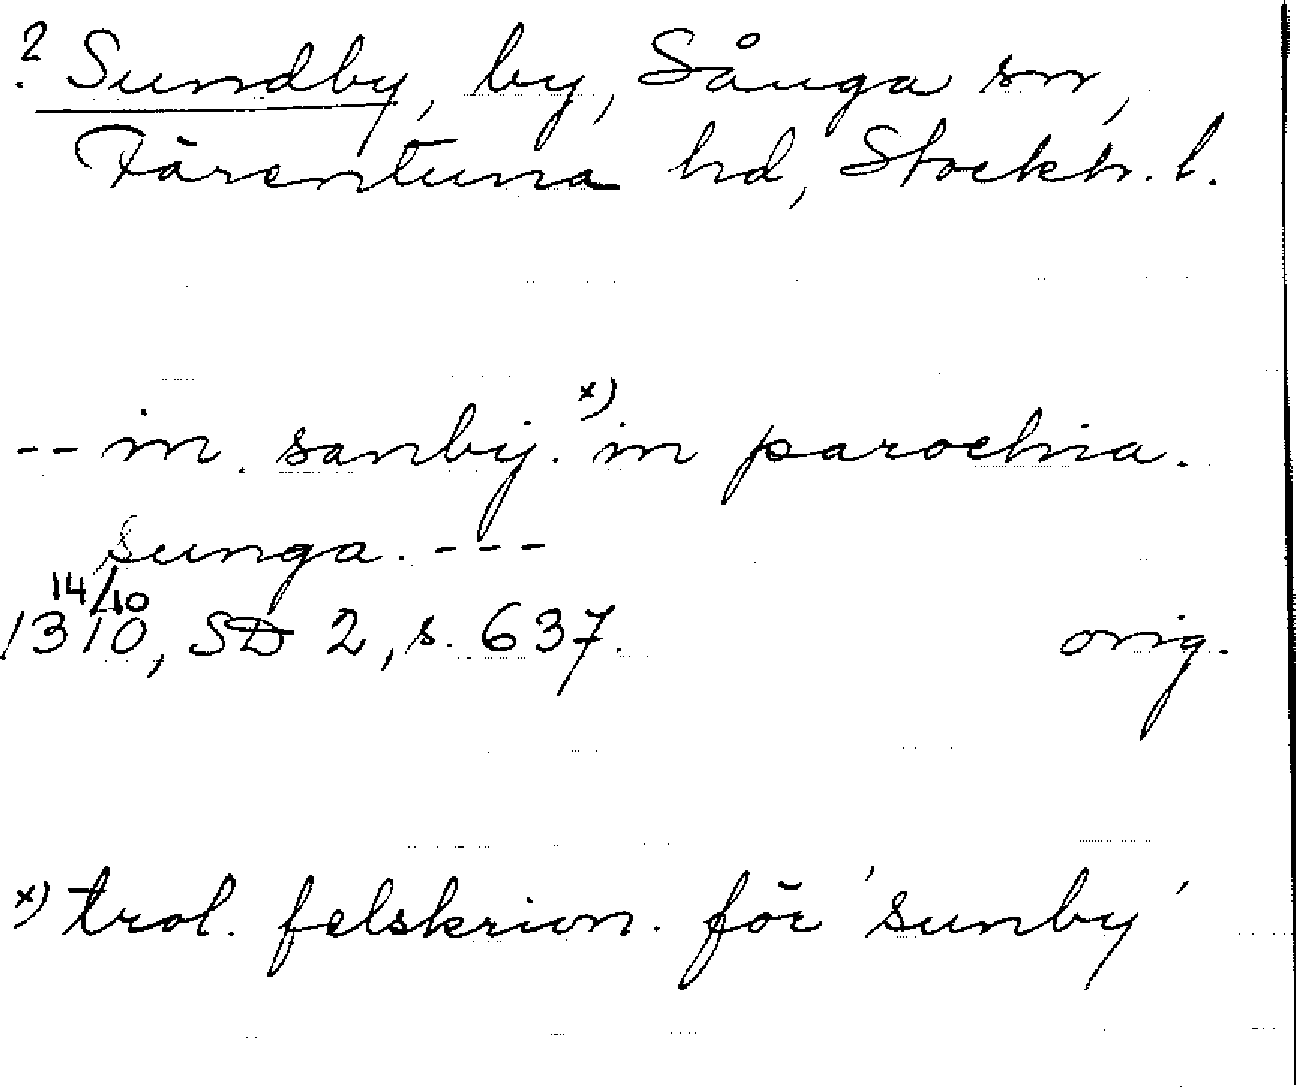 ? Sundby, by, Sånga sn,
Färentuna hd, Stockh. l.
-- in. sanby. x) in parochia.
sunga. ---
14/10
1310, SD 2, s. 637. orig.
x) trol. felskrivn. för 'sunby'